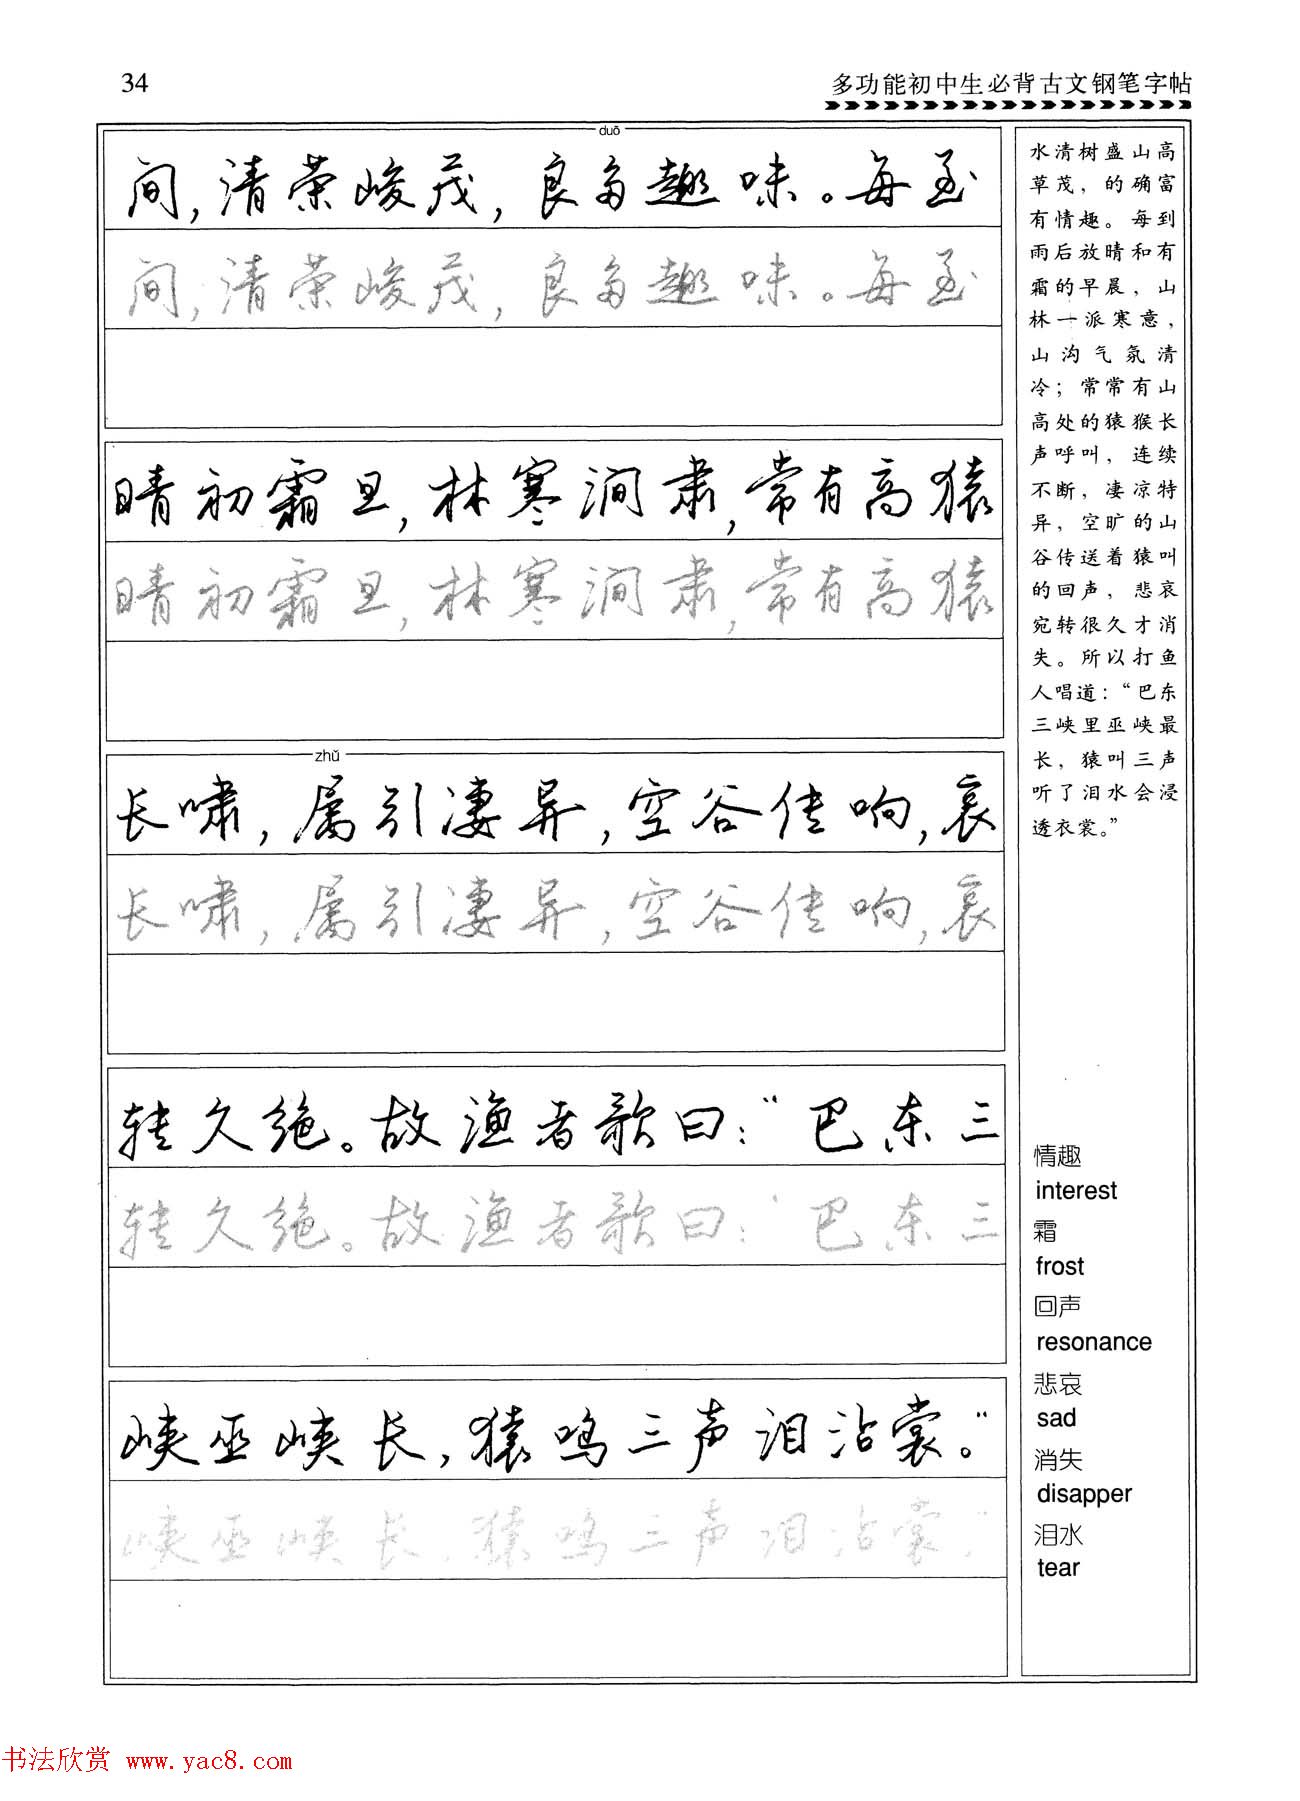 34
多功能初中生必背古文钢笔字帖
duō
间，清荣峻茂，良多趣味。每至
间，清荣峻茂，良多趣味。每至
晴初霜旦，林寒涧肃，常有高猿
晴初霜旦，林寒涧肃，常有高猿
zhǔ
长啸，属引凄异，空谷传响，哀
长啸，属引凄异，空谷传响，哀
转久绝。故渔者歌曰：“巴东三
转久绝。故渔者歌曰：“巴东三
峡巫峡长，猿鸣三声泪沾裳。”
峡巫峡长，猿鸣三声泪沾裳。”
水清树盛山高
草茂，的确富
有情趣。每到
雨后放晴和有
霜的早晨，山
林一派寒意，
山沟气氛清
冷；常常有山
高处的猿猴长
声呼叫，连续
不断，凄凉特
异，空旷的山
谷传送着猿叫
的回声，悲哀
宛转很久才消
失。所以打鱼
人唱道：“巴东
三峡里巫峡最
长，猿叫三声
听了泪水会浸
透衣裳。”
情趣
interest
霜
frost
回声
resonance
悲哀
sad
消失
disapper
泪水
tear
书法欣赏 www.yac8.com